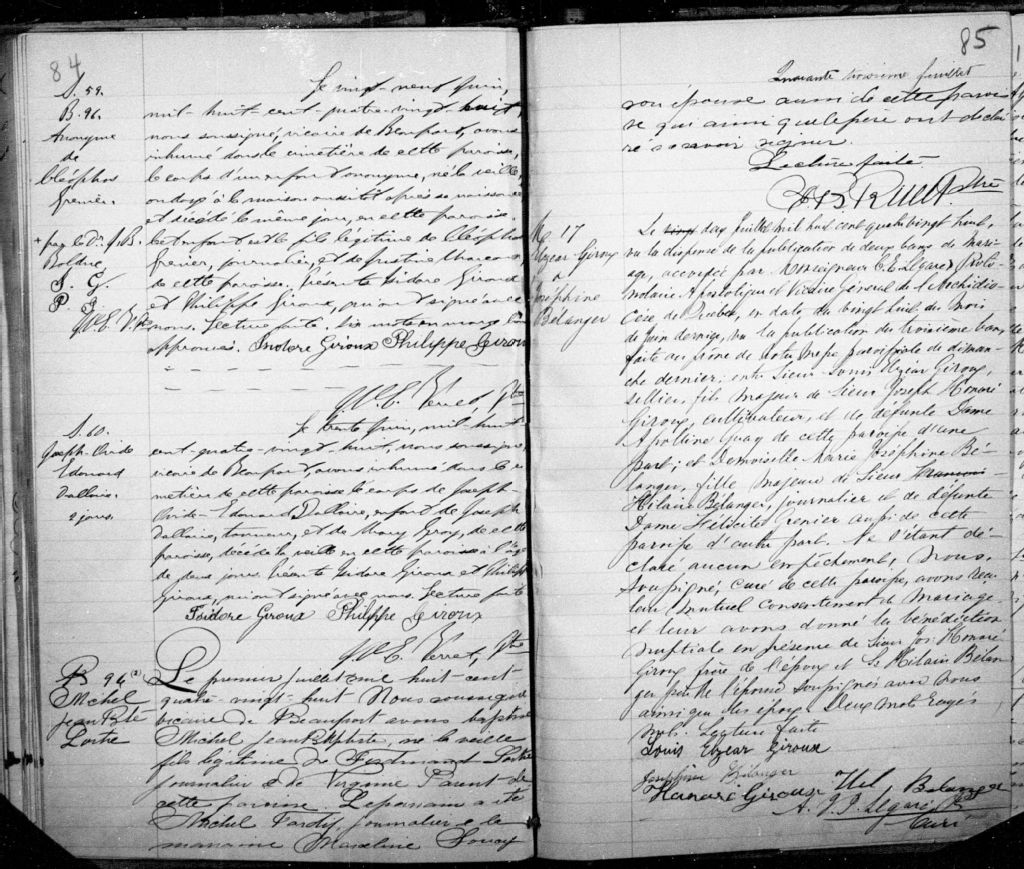 84
S. 59.
B. 96.
Anonyme
de
Cléophas
Grenier.
+ par le Dr. J. B.
Bolduc
I. G.
P. G.
J. V. E. V. Ptre
Le vingt-neuf juin,
mil-huit-cent-quatre-vingt-huit,
nous soussigné, vicaire de Beauport, avons
inhumé dans le cimetière de cette paroisse,
le corps d'un enfant anonyme, né la veille,
ondoyé à la maison aussitôt après sa naissance
et décédé le même jour, en cette paroisse.
Cet enfant est le fils légitime de Cléophas
Grenier, journalier, et de
de cette paroisse. Présents Isidore Giroux
et Philippe Giroux, qui ont signé avec
nous. Lecture faite. Six mots en marge bons
approuvés. Isidore Giroux Philippe Giroux
J. V. E. Verret, Ptre
S. 60.
Joseph-Ovide
Edouard
Dallaire.
2 jours.
Le trente juin, mil-huit
cent-quatre-vingt-huit, nous soussigné,
vicaire de Beauport, avons inhumé dans le ci
metière de cette paroisse le corps de Joseph-
Ovide-Edouard Dallaire, enfant de Joseph
Dallaire, tanneur, et de Mary Gray, de cette
paroisse, décédé la veille en cette paroisse à l'âge
de deux jours. Présents Isidore Giroux et Philippe
Giroux, qui ont signé avec nous. Lecture faite
Isidore Giroux Philippe Giroux
J. V. E. Verret, Ptre
B 94 (2)
Michel
Jean Bte
Lortie
Le premier juillet mil huit-cent
quatre-vingt-huit Nous soussigné
vicaire de Beauport avons baptisé
Michel Jean Baptiste, né la veille
fils légitime de Ferdinand Lortie
journalier & de Virginie Parent de
cette paroisse. Le parrain a été
Michel Tardif journalier & la
marraine Marceline
85
Quarante troisième feuillet
son épouse aussi de cette parois
se qui ainsi que le père ont décla
ré ne savoir signer.
Lecture faite
Ptre
M. 17
Elzear Giroux
&
Josephine
Bélanger
Le vingt dix Juillet mil huit cent quatre vingt huit,
vu la dispense de la publication de deux bans de mari-
age, accordée par Monseigneur C. E. Légaré, Proto-
notaire Apostolique et Vicaire Général de l'Archidio-
cèse de Québec, en date du vingt huit du mois
de Juin dernier, vu la publication du troisième ban,
faite au prône de notre messe paroissiale de diman-
che dernier; entre Sieur Louis Elzear Giroux,
sellier, fils majeur de Sieur Joseph Honoré
Giroux, cultivateur, et de défunte Dame
Apolline Guay de cette paroisse d'une
part; et Demoiselle Marie Joséphine Bé-
langer, fille majeure de Sieur François
Hilaire Bélanger, journalier et de défunte
Dame Félicité Grenier aussi de cette
paroisse d'autre part. Ne s'étant dé-
claré aucun empêchement, Nous,
Soussigné, Curé de cette paroisse, avons reçu
leur mutuel consentement de mariage
et leur avons donné la bénédiction
nuptiale en présence de Sieur Jos. Honoré
Giroux, frère de l'époux et de Hilaire Bélan
ger père de l'épouse soussignés avec nous
ainsi que les époux. Deux mots rayés
nuls. Lecture faite
Louis Elzear Giroux
Josephine Bélanger
Honoré Giroux Hel Belanger
Légaré Ptre
Curé